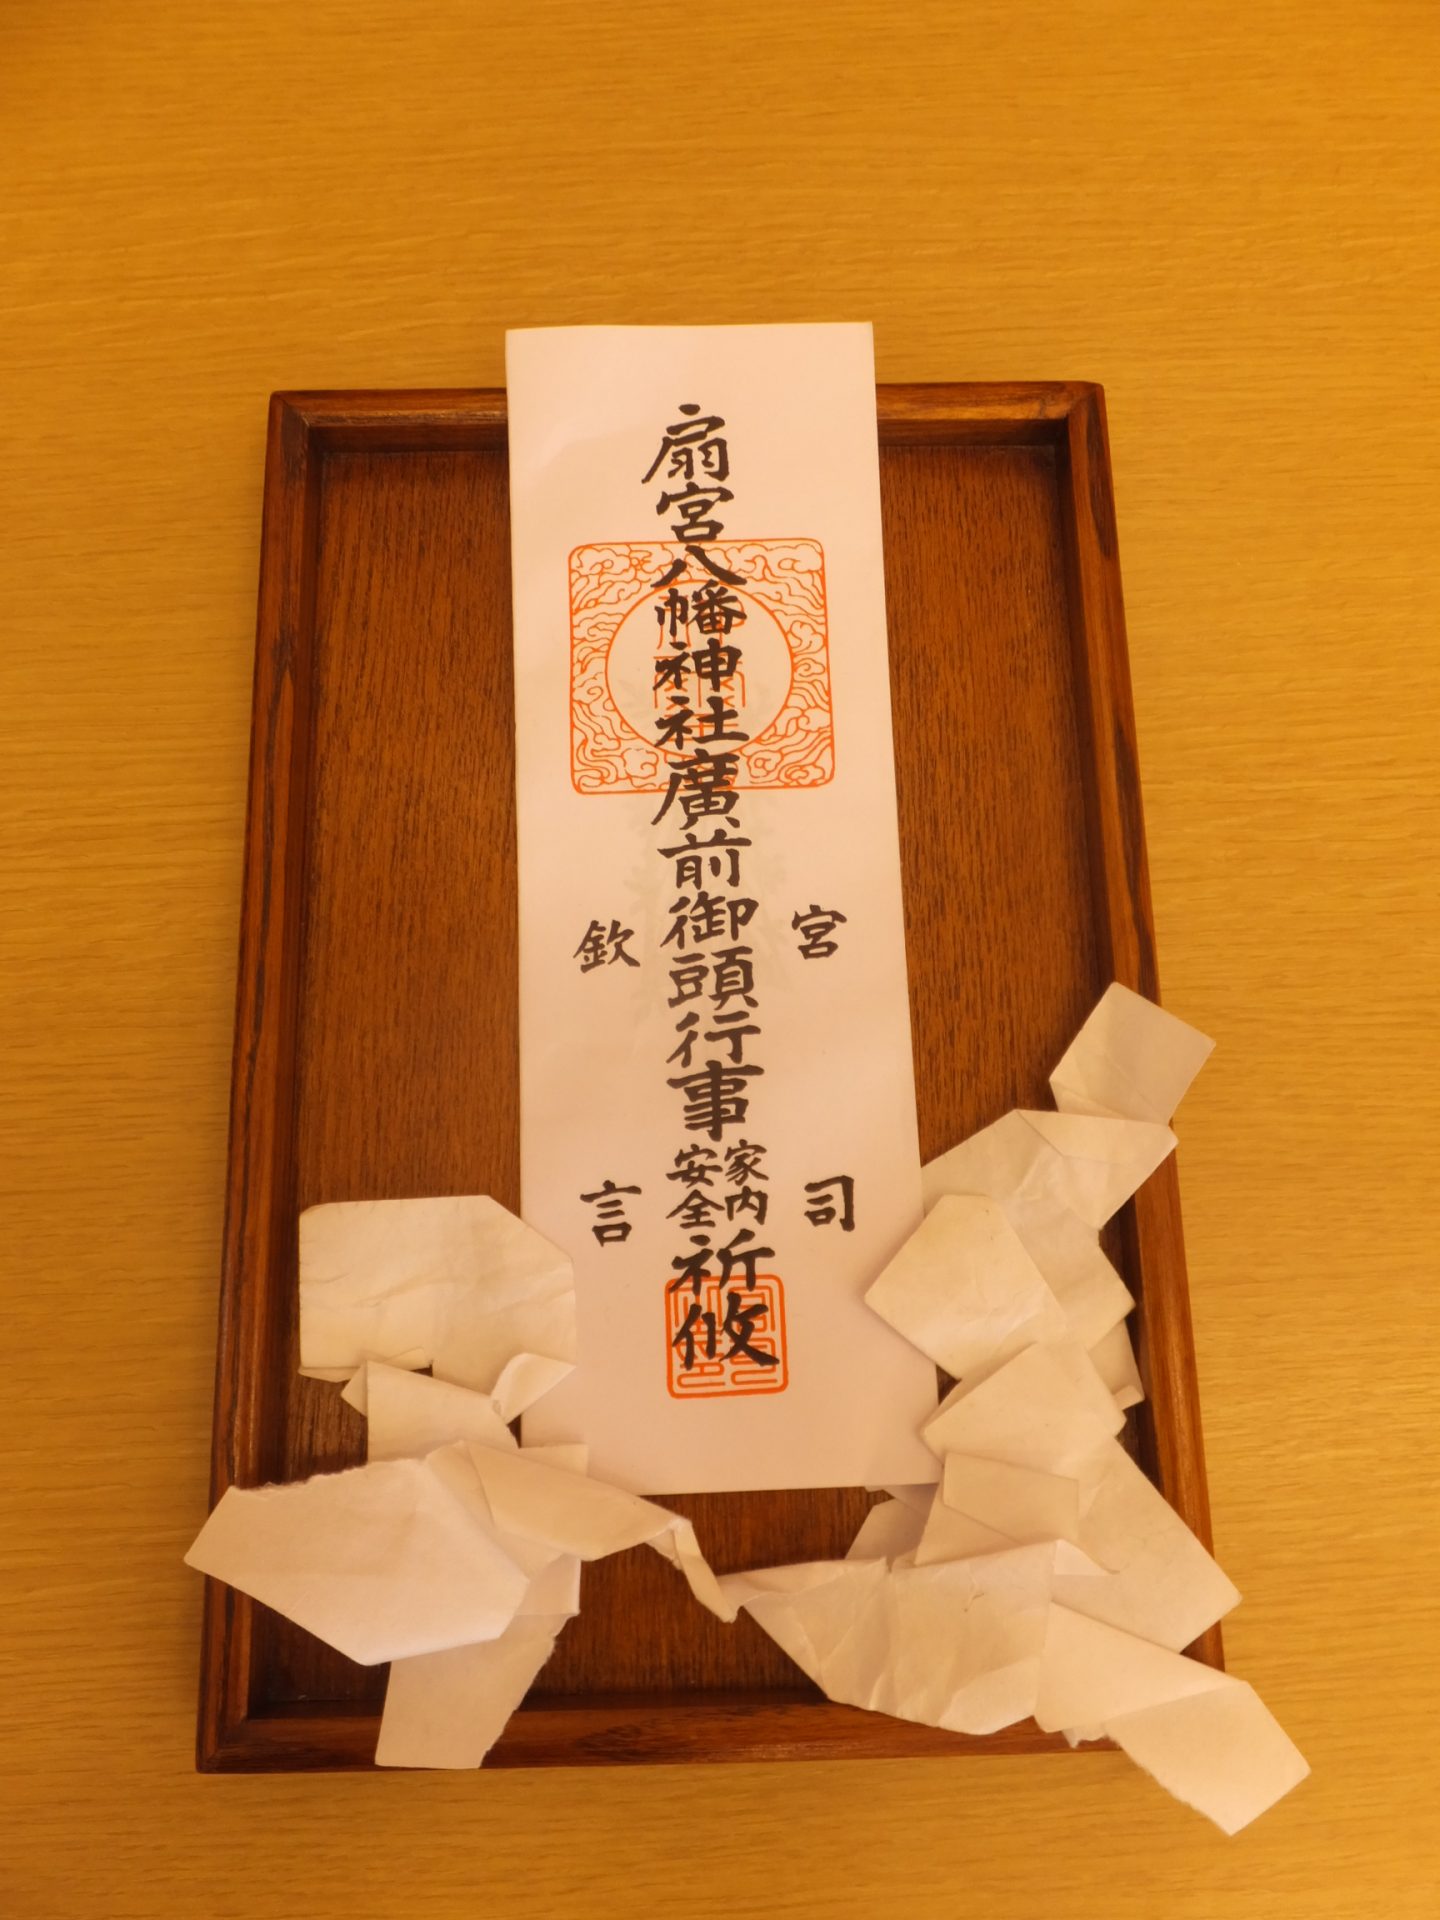 宮司
扇宮八幡神社廣前御頭行事家内安全祈攸
欽言